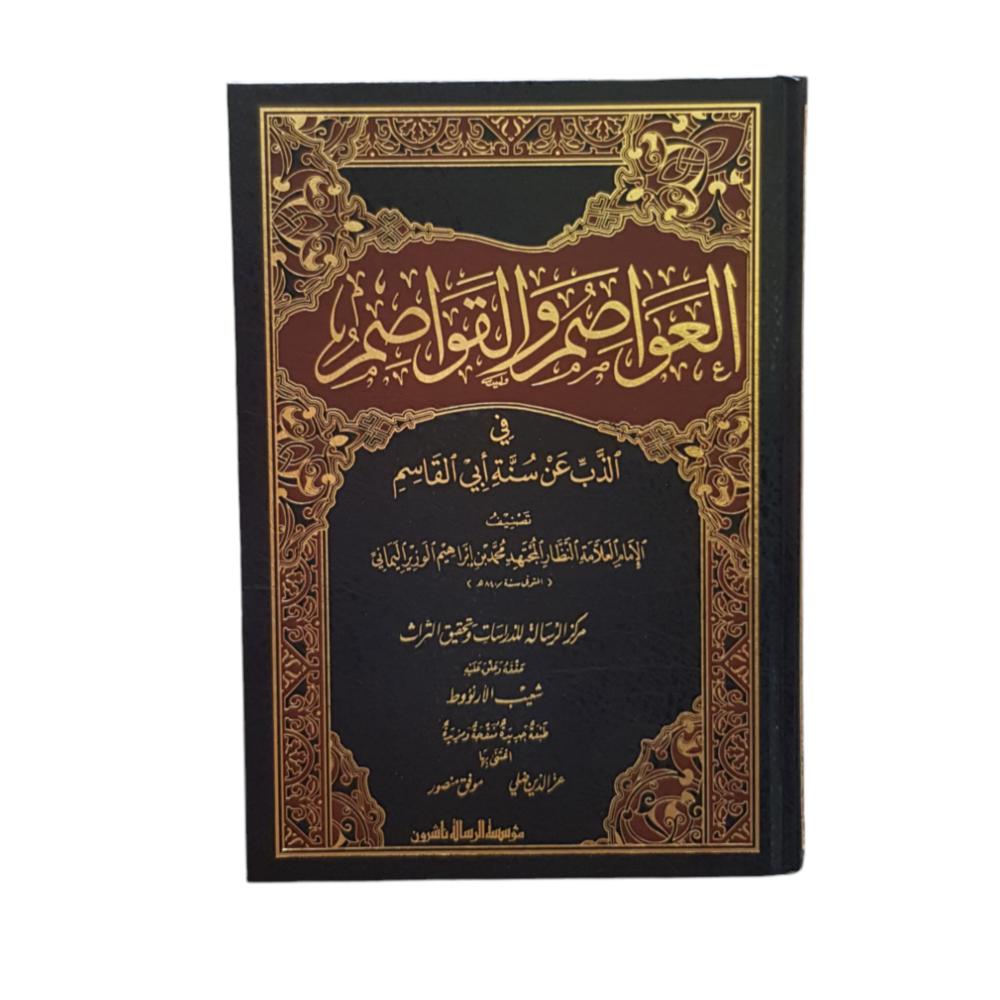 العَوَاصِمُ وَالقَوَاصِمُ
في
الذَّبِّ عَنْ سُنَّةِ أَبِي القَاسِمِ
تَصْنِيفُ
الإِمَامِ العَلَّامَةِ النَّظَّارِ المُجْتَهِدِ مُحَمَّد بْنِ إِبْرَاهِيمَ الوَزِيرِ اليَمَانِيّ
( المتوفى سنة ٨٤٠هـ )
مركز الرسالة للدراسات وتحقيق التراث
حَقَّقَهُ وَعَلَّقَ عَلَيْهِ
شعيب الأرنؤوط
طَبْعَةٌ جَدِيدَةٌ مُنَقَّحَةٌ وَمَزِيدَةٌ
اعْتَنَى بِهَا
عز الدين ضلي موفق منصور
مؤسسة الرسالة ناشرون